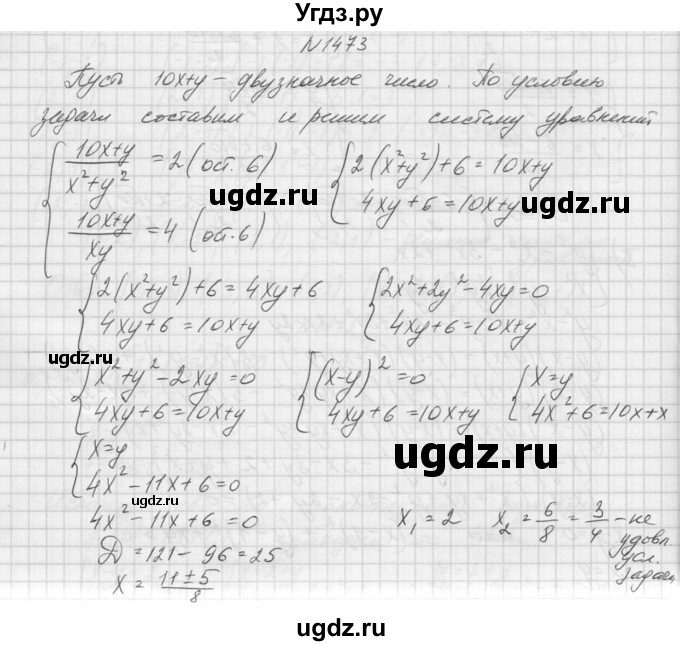 Угдз.ру
N1473
Пусть 10x+y – двузначное число. По условию
задачи составим и решим систему уравнений
{ (10x+y)/(x²+y²) = 2 (ост. 6)
(10x+y)/(xy) = 4 (ост. 6)
{ 2(x²+y²)+6=10x+y
4xy+6=10x+y
ugdz.ru ugdz.ru
{ 2(x²+y²)+6=4xy+6
4xy+6=10x+y
{ 2x²+2y²-4xy=0
4xy+6=10x+y
ugdz.ru
{ x²+y²-2xy=0
4xy+6=10x+y
{ (x-y)²=0
4xy+6=10x+y
{ x=y
4x²+6=10x+x
ugdz.ru
{ x=y
4x²-11x+6=0
ugdz.ru
4x²-11x+6=0
D=121-96=25
x = (11±5)/8
x₁=2 x₂ = 6/8 = 3/4 – не
удовл.
усл.
задачи
ugdz.ru
ugdz.ru